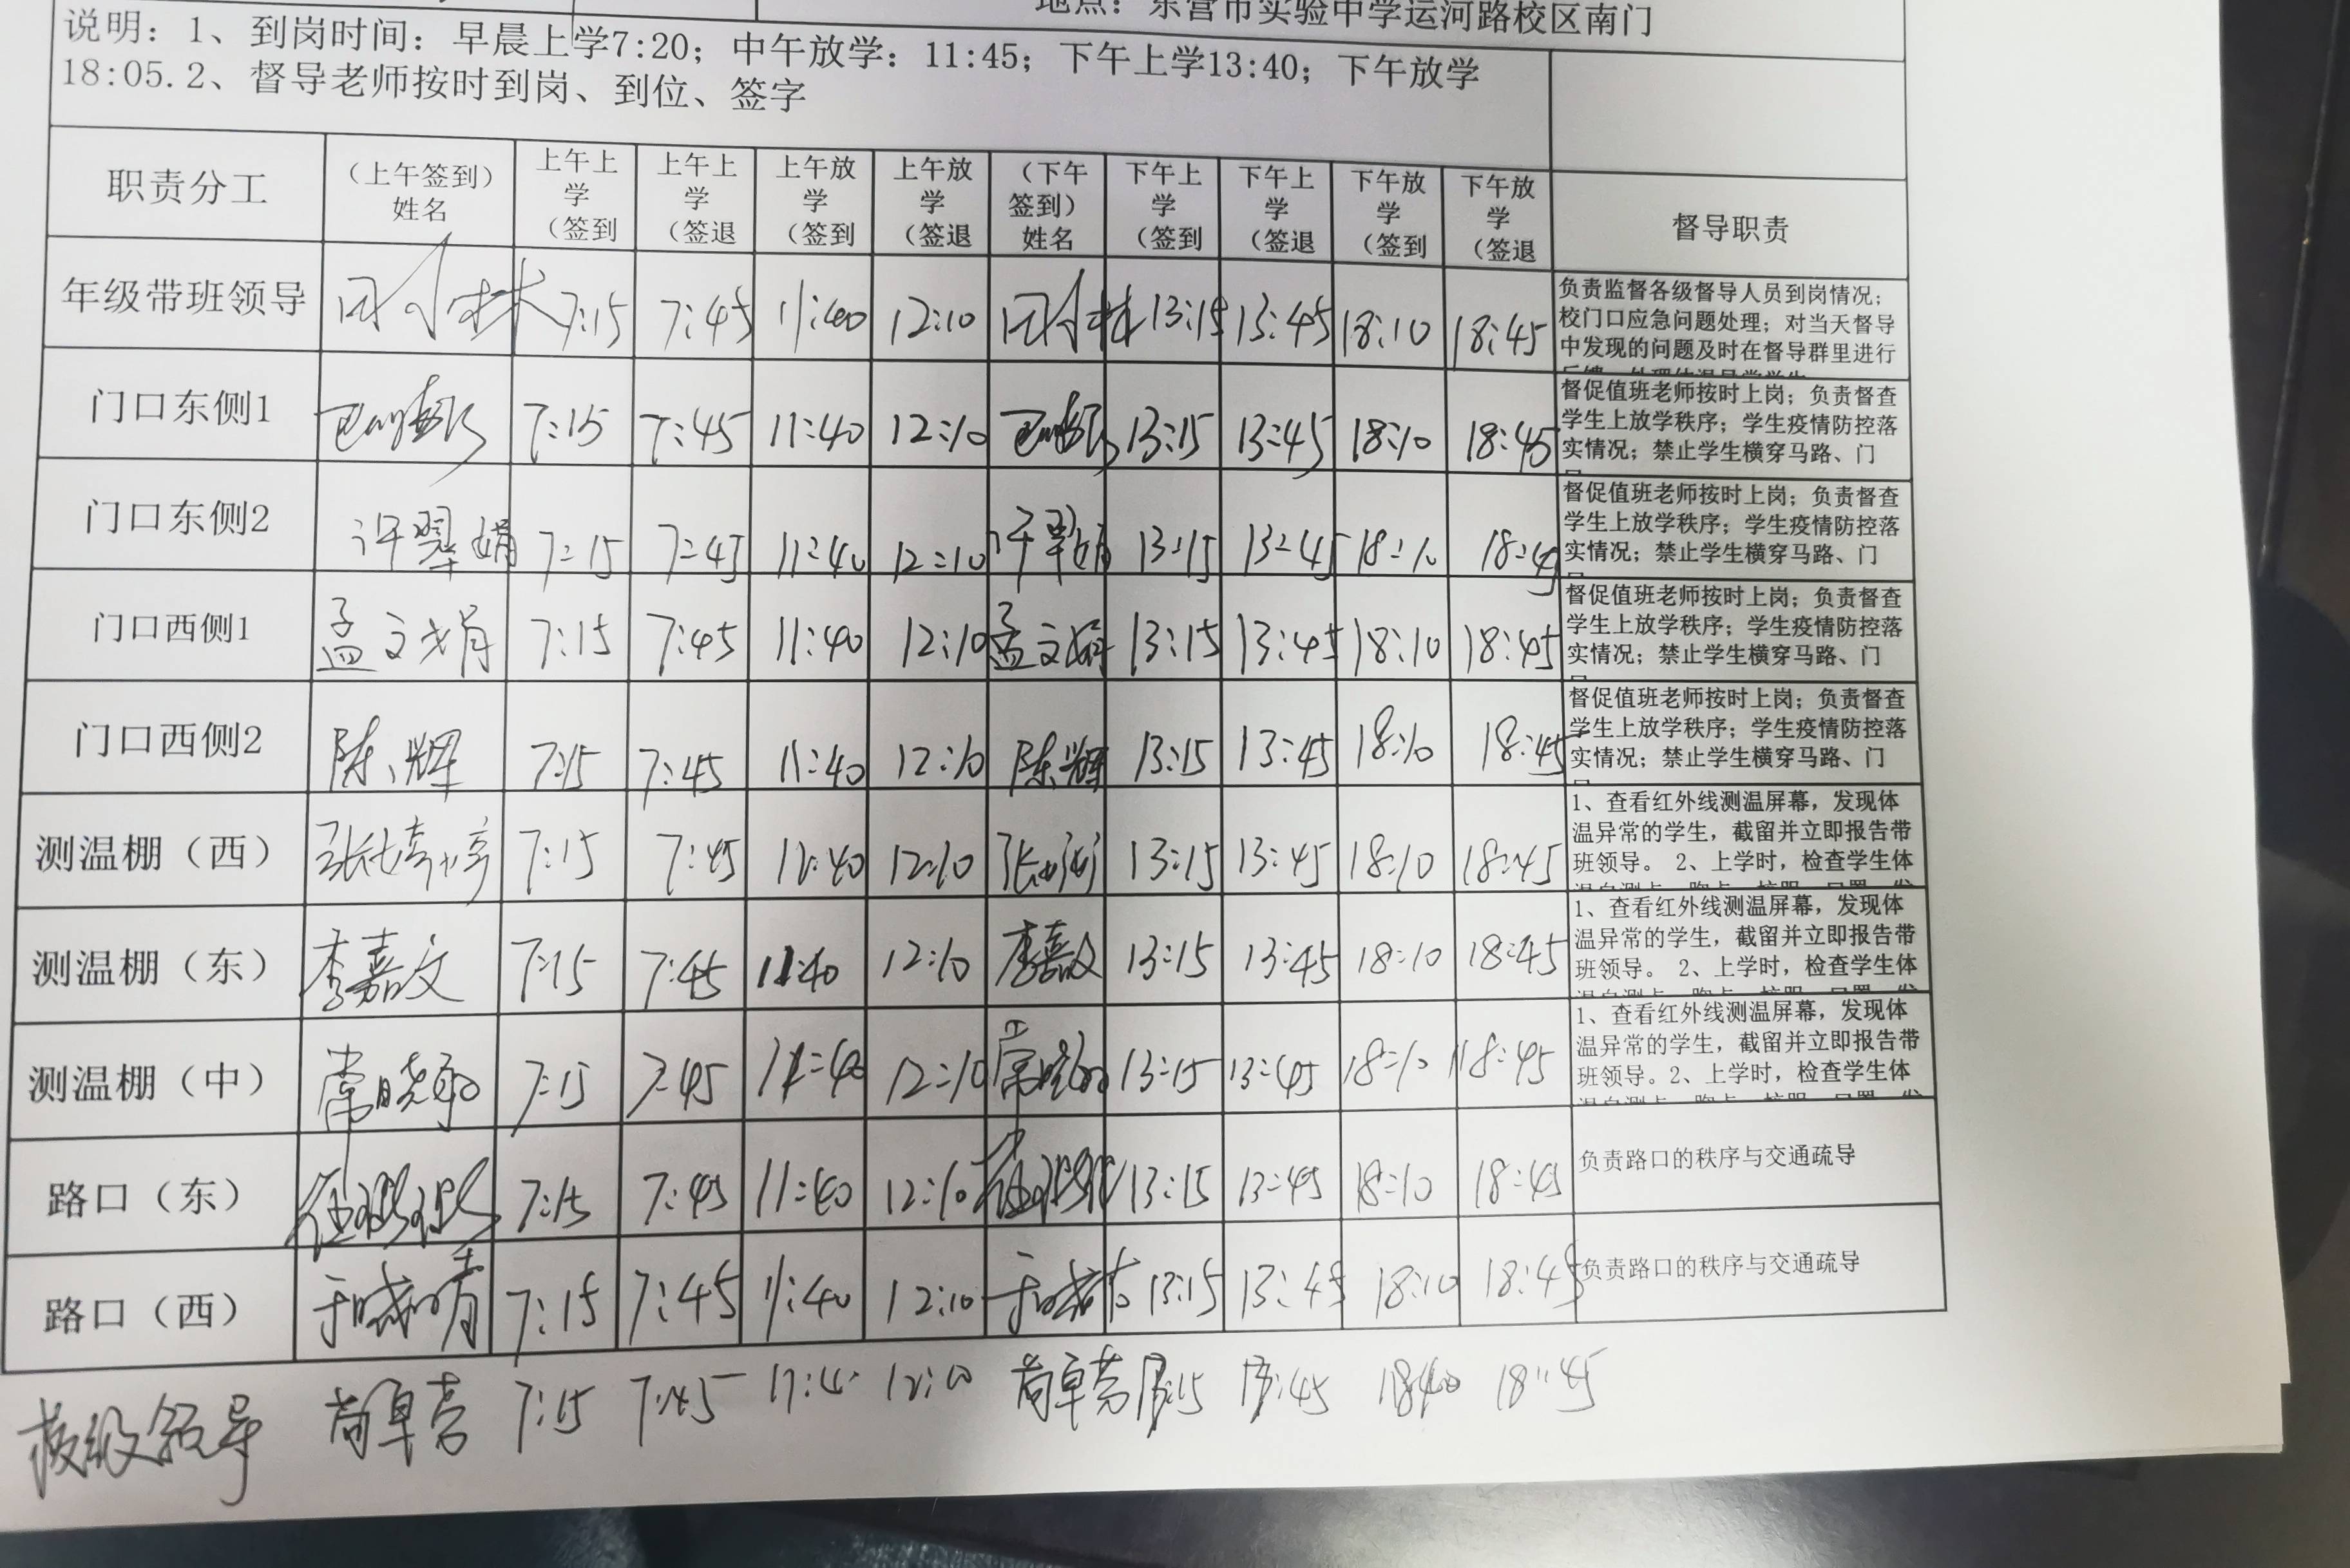 地点：东营市实验中学运河路校区南门
说明：1、到岗时间：早晨上学7:20；中午放学：11:45；下午上学13:40；下午放学
18:05.2、督导老师按时到岗、到位、签字
职责分工 （上午签到）姓名 上午上学（签到 上午上学（签退 上午放学（签到 上午放学（签退 （下午签到）姓名 下午上学（签到 下午上学（签退 下午放学（签到 下午放学（签退 督导职责
年级带班领导 7:15 7:45 11:40 12:10 13:15 13:45 18:10 18:45
负责监督各级督导人员到岗情况；
校门口应急问题处理；对当天督导
中发现的问题及时在督导群里进行
门口东侧1 7:15 7:45 11:40 12:10 13:15 13:45 18:10 18:45
督促值班老师按时上岗；负责督查
学生上放学秩序；学生疫情防控落
实情况；禁止学生横穿马路、门
门口东侧2 许翠娟 7:15 7:45 11:40 12:10 许翠娟 13:15 13:45 18:10 18:45
督促值班老师按时上岗；负责督查
学生上放学秩序；学生疫情防控落
实情况；禁止学生横穿马路、门
门口西侧1 孟文娟 7:15 7:45 11:40 12:10 孟文娟 13:15 13:45 18:10 18:45
督促值班老师按时上岗；负责督查
学生上放学秩序；学生疫情防控落
实情况；禁止学生横穿马路、门
门口西侧2 陈辉 7:15 7:45 11:40 12:10 陈辉 13:15 13:45 18:10 18:45
督促值班老师按时上岗；负责督查
学生上放学秩序；学生疫情防控落
实情况；禁止学生横穿马路、门
测温棚（西） 张婷婷 7:15 7:45 11:40 12:10 张婷婷 13:15 13:45 18:10 18:45
1、查看红外线测温屏幕，发现体
温异常的学生，截留并立即报告带
班领导。 2、上学时，检查学生体
测温棚（东） 李嘉文 7:15 7:45 11:40 12:10 李嘉文 13:15 13:45 18:10 18:45
1、查看红外线测温屏幕，发现体
温异常的学生，截留并立即报告带
班领导。 2、上学时，检查学生体
测温棚（中） 7:15 7:45 11:40 12:10 13:15 13:45 18:10 18:45
1、查看红外线测温屏幕，发现体
温异常的学生，截留并立即报告带
班领导。2、上学时，检查学生体
路口（东） 7:15 7:45 11:40 12:10 13:15 13:45 18:10 18:45 负责路口的秩序与交通疏导
路口（西） 7:15 7:45 11:40 12:10 13:15 13:45 18:10 18:45 负责路口的秩序与交通疏导
校级领导 7:15 7:45 12:10 13:15 13:45 18:45